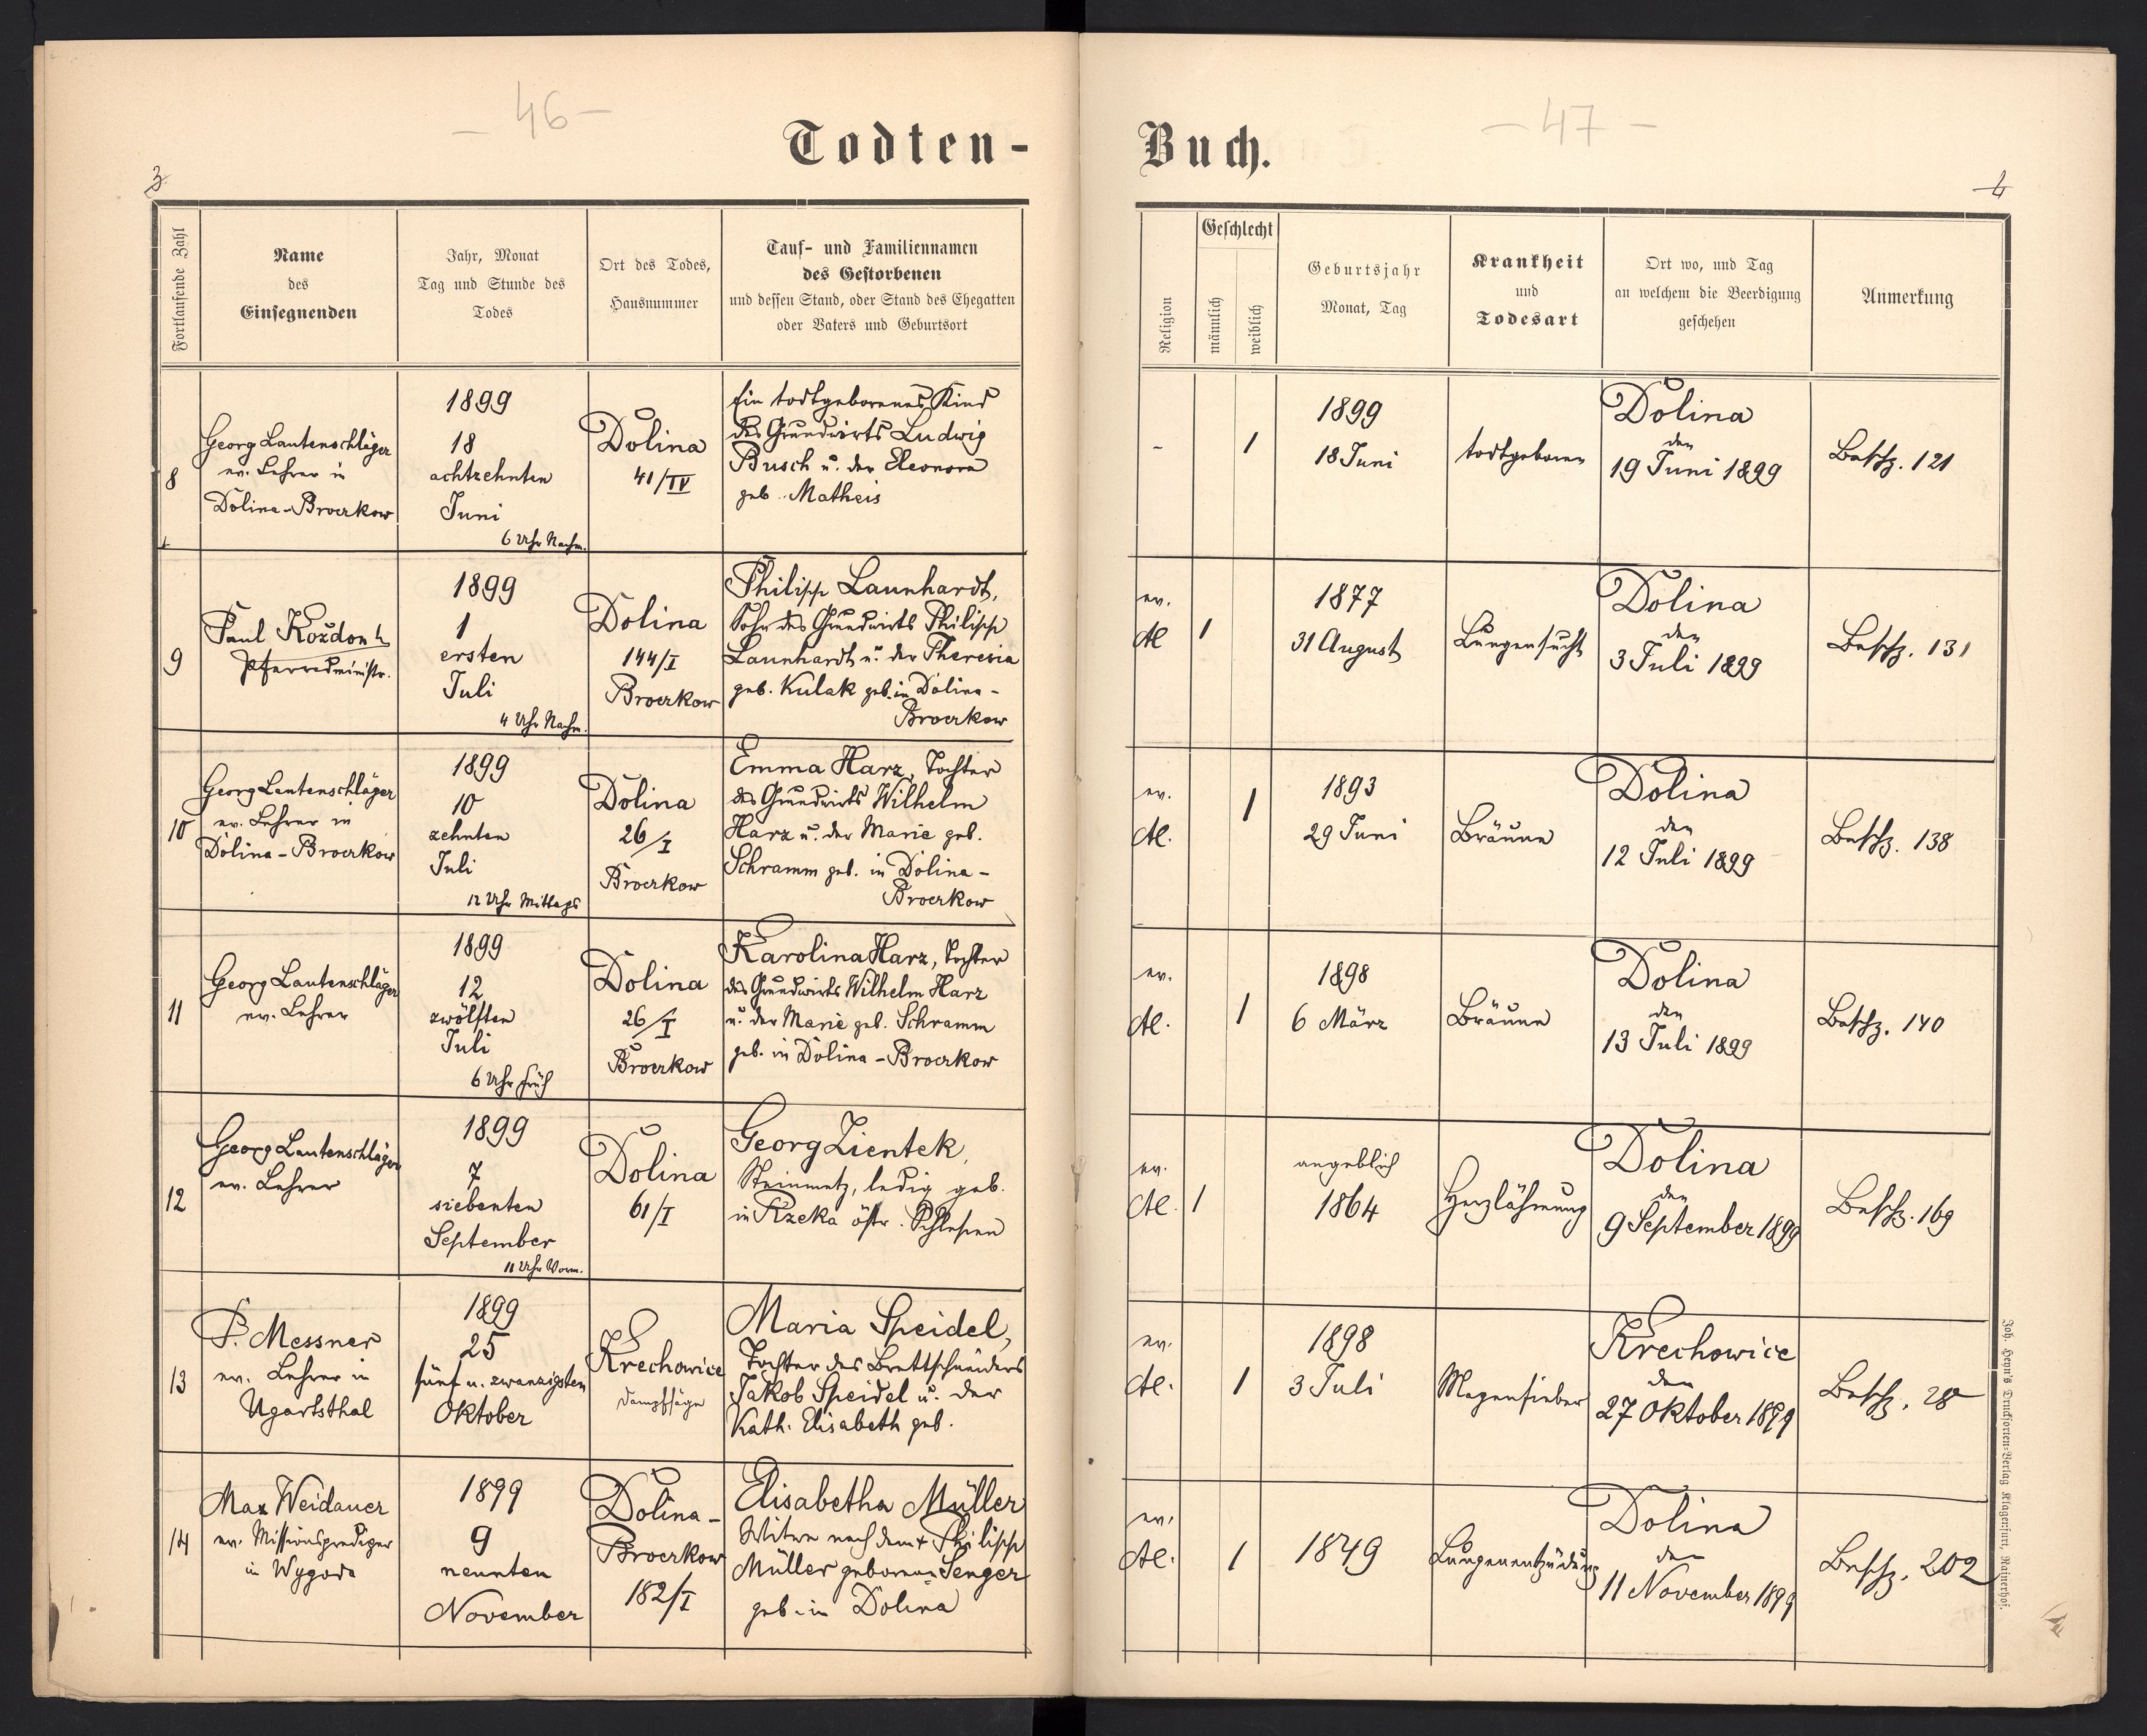 - 46 -
Todten-
3
Fortlaufende Zahl
Name
des
Einsegnenden
Jahr, Monat
Tag und Stunde des
Todes
Ort des Todes,
Hausnummer
Tauf- und Familiennamen
des Gestorbenen
und dessen Stand, oder Stand des Ehegatten
oder Vaters und Geburtsort
8
Georg Lautenschläger
ev. Lehrer in
Dolina-Broczkow
1899
18
achtzehnten
Juni
6 Uhr Nachm.
Dolina
41/IV
Ein todtgeborenes Kind
des Grundwirts Ludwig
Busch u. der Eleonora
geb. Matheis
9
Paul Kozdon
Pfarradministr.
1899
1
ersten
Juli
4 Uhr Nachm.
Dolina
144/I
Broczkow
Philipp Launhardt,
Sohn des Grundwirts Philipp
Launhardt u. der Theresia
geb. Kulak geb. in Dolina-
Broczkow
10
Georg Lautenschläger
ev. Lehrer in
Dolina-Broczkow
1899
10
zehnten
Juli
12 Uhr Mittags
Dolina
26/I
Broczkow
Emma Harz, Tochter
des Grundwirts Wilhelm
Harz u. der Marie geb.
Schramm geb. in Dolina-
Broczkow
11
Georg Lautenschläger
ev. Lehrer
1899
12
zwölften
Juli
6 Uhr früh
Dolina
26/I
Broczkow
Karolina Harz, Tochter
des Grundwirts Wilhelm Harz
u. der Marie geb. Schramm
geb. in Dolina-Broczkow
12
Georg Lautenschläger
ev. Lehrer
1899
7
siebenten
September
11 Uhr Vorm.
Dolina
61/I
Georg Zientek,
Steinmetz, ledig geb.
in Rzeka östr. Schlesien
13
P. Messner
ev. Lehrer in
Ugartsthal
1899
25
fünf u. zwanzigsten
Oktober
Krechowice
Dampfsäge
Maria Speidel,
Tochter des Brettschneiders
Jakob Speidel u. der
Kath. Elisabeth geb.
14
Max Weidauer
ev. Missionsprediger
in Wygoda
1899
9
neunten
November
Dolina-
Broczkow
182/I
Elisabetha Müller
Witwe nach dem + Philipp
Müller geborene Senger
geb. in Dolina
- 47 -
Buch.
4
Religion
Geschlecht
männlich
weiblich
Geburtsjahr
Monat, Tag
Krankheit
und
Todesart
Ort wo, und Tag
an welchem die Beerdigung
geschehen
Anmerkung
-
1
1899
18 Juni
todtgeboren
Dolina
den
19 Juni 1899
Beschz. 121
ev.
AC
1
1877
31 August
Lungensucht
Dolina
den
3 Juli 1899
Beschz. 131
ev.
AC.
1
1893
29 Juni
Bräune
Dolina
den
12 Juli 1899
Beschz. 138
ev.
AC.
1
1898
6 März
Bräune
Dolina
den
13 Juli 1899
Beschz. 140
ev.
AC.
1
angeblich
1864
Herzlähmung
Dolina
den
9 September 1899
Beschz. 169
ev.
AC.
1
1898
3 Juli
Magenfieber
Krechowice
den
27 Oktober 1899
Beschz. 28
ev.
AC.
1
1849
Lungenentzündung
Dolina
den
11 November 1899
Beschz. 202
Joh. Heyn's Drucksorten-Verlag Klagenfurt, Rainerhof.